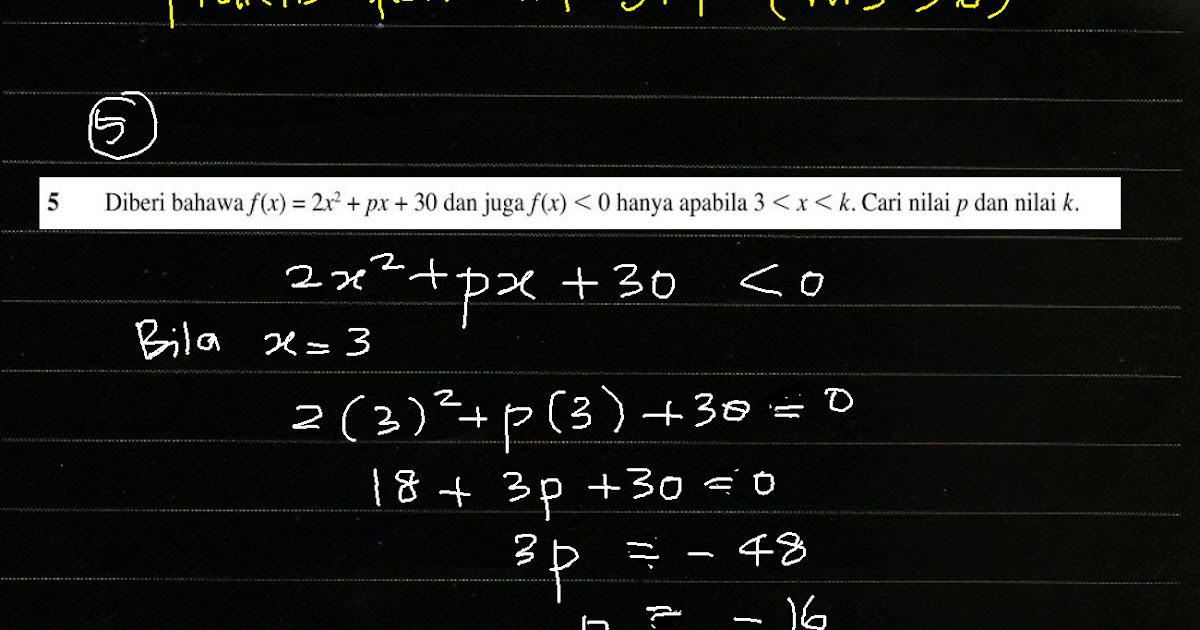 5
5 Diberi bahawa f(x) = 2x² + px + 30 dan juga f(x) < 0 hanya apabila 3 < x < k. Cari nilai p dan nilai k.
2x² + px + 30 < 0
Bila x = 3
2(3)² + p(3) + 30 = 0
18 + 3p + 30 = 0
3p = - 48
p = - 16